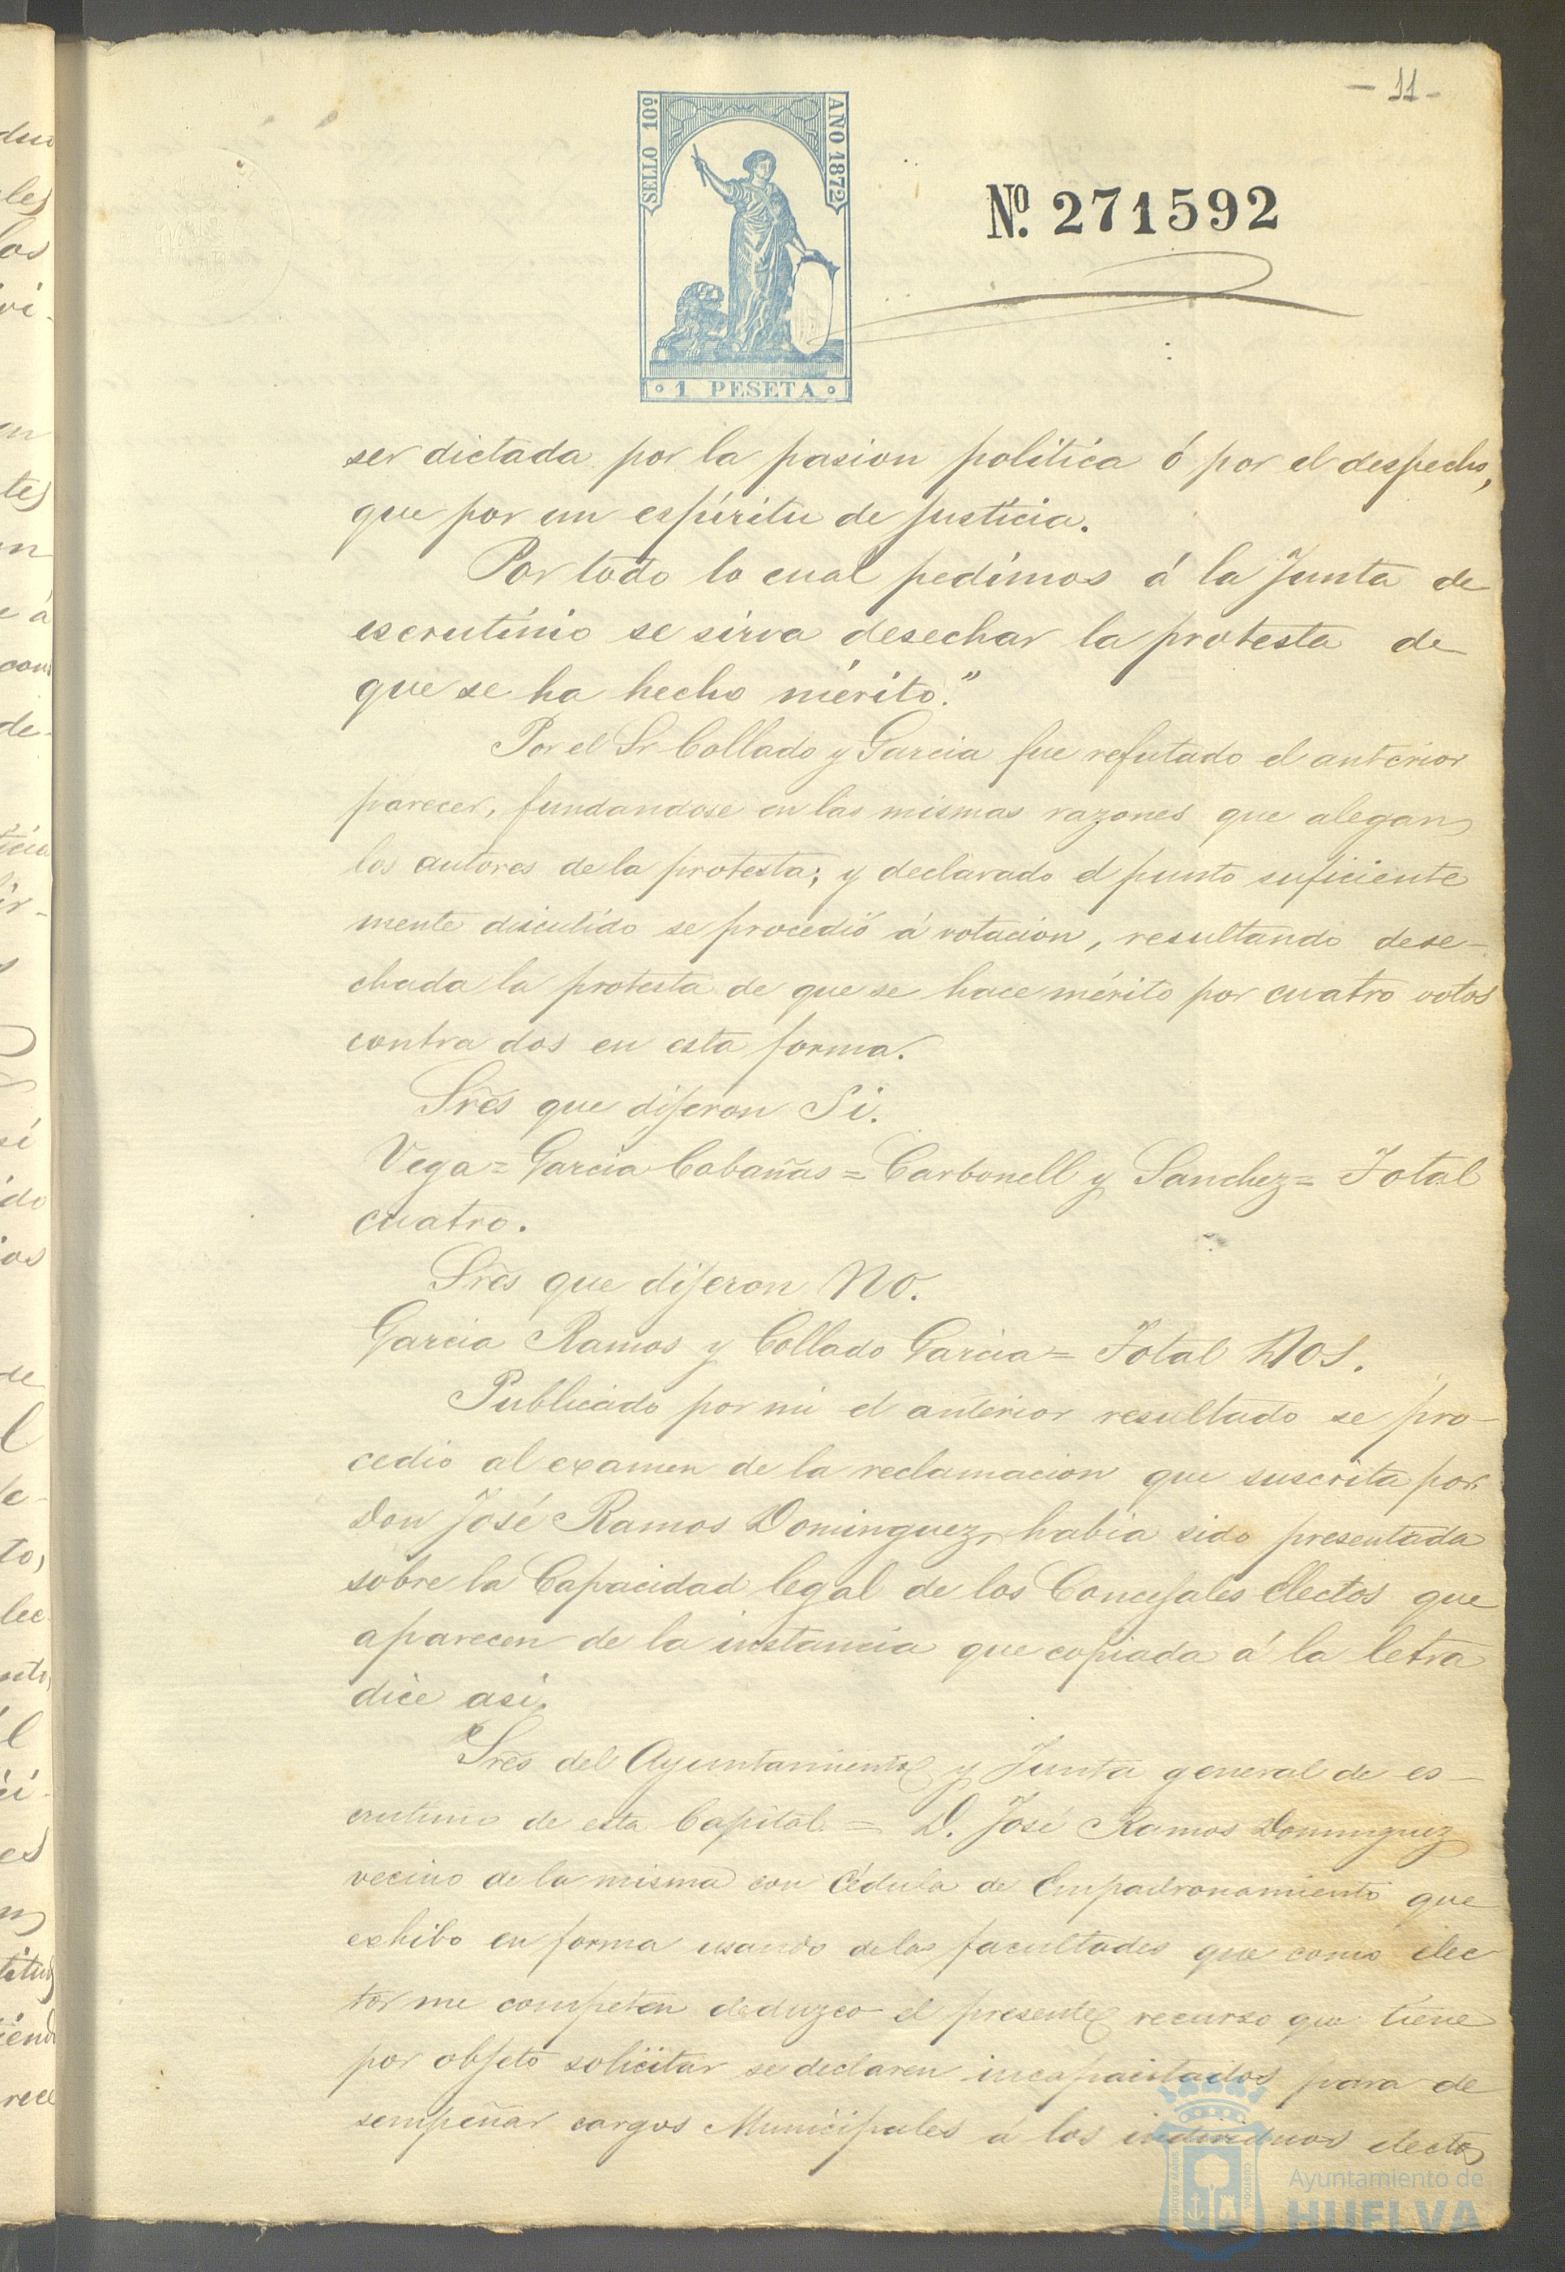 - 11 -
SELLO 10º
AÑO 1872
Nº 271592
1 PESETA
ser dictada por la pasion politica ó por el despecho,
que por un espíritu de justicia.
Por todo lo cual pedimos á la Junta de
escrutinio se sirva desechar la protesta de
que se ha hecho mérito."
Por el Sr Collado y Garcia fue refutado el anterior
parecer, fundandose en las mismas razones que alegan
los autores de la protesta; y declarado el punto suficiente
mente discutido se procedió á votacion, resultando dese-
chada la protesta de que se hace mérito por cuatro votos
contra dos en esta forma.
Sres que dijeron Si.
Vega = Garcia Cabañas = Carbonell y Sanchez = Total
cuatro.
Sres que dijeron No.
Garcia Ramos y Collado Garcia = Total Dos.
Publicado por mi el anterior resultado se pro-
cedio al examen de la reclamacion que suscrita por
Don José Ramos Dominguez, habia sido presentada
sobre la Capacidad legal de los Concejales electos que
aparecen de la instancia que copiada á la letra
dice asi.
"Sres del Ayuntamiento y Junta general de es-
crutinio de esta Capital = D. José Ramos Dominguez
vecino de la misma con Cédula de Empadronamiento que
exhibo en forma usando de las facultades que como elec-
tor me competen deduzco el presente recurso que tiene
por objeto solicitar se declaren incapacitados para de
sempeñar cargos Municipales a los individuos electos
Ayuntamiento de
HUELVA